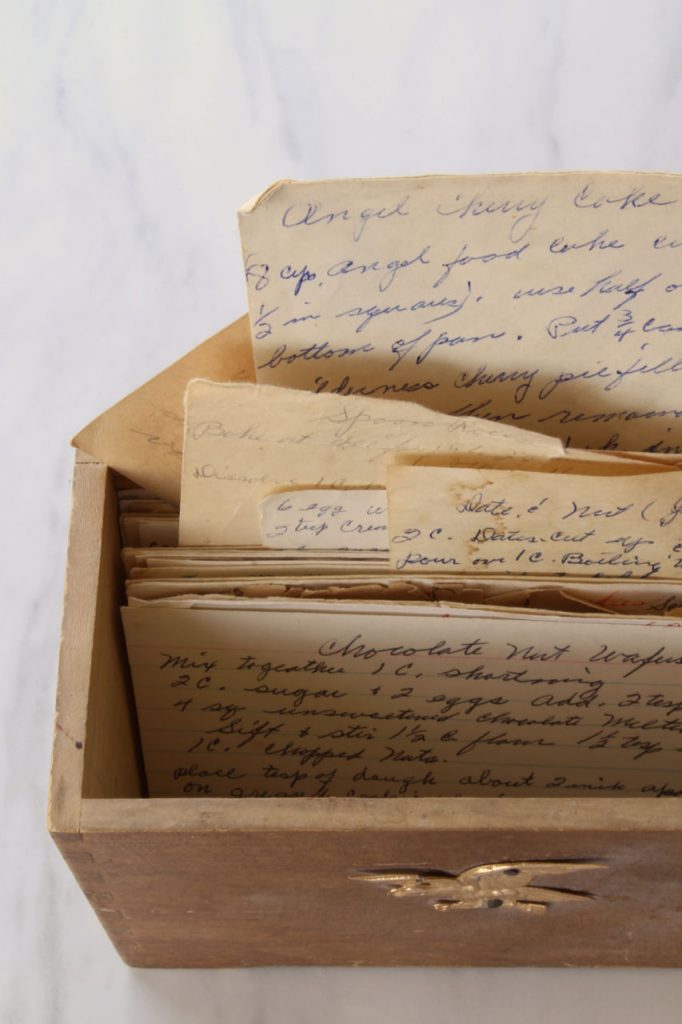 Angel Cherry Cake
8 cup. Angel food cake cu
1/2 in squares). use half o
bottom of pan. Put 3/4 can
ilderness cherry pie fill
then remain
Spoon
Bake at
Dissolve
6 egg w
2 tsp Crea
Date & Nut
2 C. Dates. cut up
Pour over 1 C. Boiling
Chocolate Nut Wafers
Mix togeather 1 C. shortning
2 C. sugar + 2 eggs add. 2 tesp
4 sq unsweetened chocolate Melte
Sift + stir 1 1/2 C flour 1 1/2 tsp
1 C. Chopped Nuts.
place teasp of dough about 2 inch apa
on